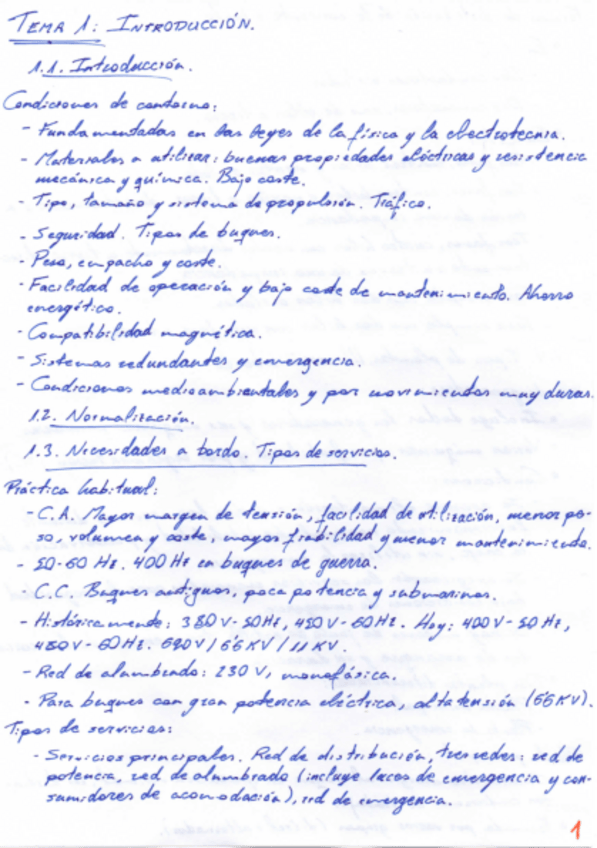 TEMA 1: INTRODUCCIÓN.
1.1. Introducción.
Condiciones de contorno:
- Fundamentadas en las leyes de la física y la electrotecnia.
- Materiales a utilizar: buenas propiedades eléctricas y resistencia
mecánica y química. Bajo coste.
- Tipo, tamaño y sistema de propulsión. Tráfico.
- Seguridad. Tipos de buques.
- Peso, empacho y coste.
- Facilidad de operación y bajo coste de mantenimiento. Ahorro
energético.
- Compatibilidad magnética.
- Sistemas redundantes y emergencia.
- Condiciones medioambientales y por movimientos muy duras.
1.2. Normalización.
1.3. Necesidades a bordo. Tipos de servicios.
Práctica habitual:
- C.A. Mayor margen de tensión, facilidad de utilización, menor pe-
so, volumen y coste, mayor fiabilidad y menor mantenimiento.
- 50-60 Hz. 400 Hz en buques de guerra.
- C.C. Buques antiguos, poca potencia y submarinos.
- Históricamente: 380V-50Hz, 450V-60Hz. Hoy: 400V-50Hz,
480V-60Hz. 690V/6'6KV/11KV.
- Red de alumbrado: 230V, monofásica.
- Para buques con gran potencia eléctrica, alta tensión (6'6KV).
Tipos de servicios:
- Servicios principales. Red de distribución, tres redes: red de
potencia, red de alumbrado (incluye luces de emergencia y con-
sumidores de acomodación), red de emergencia.
1